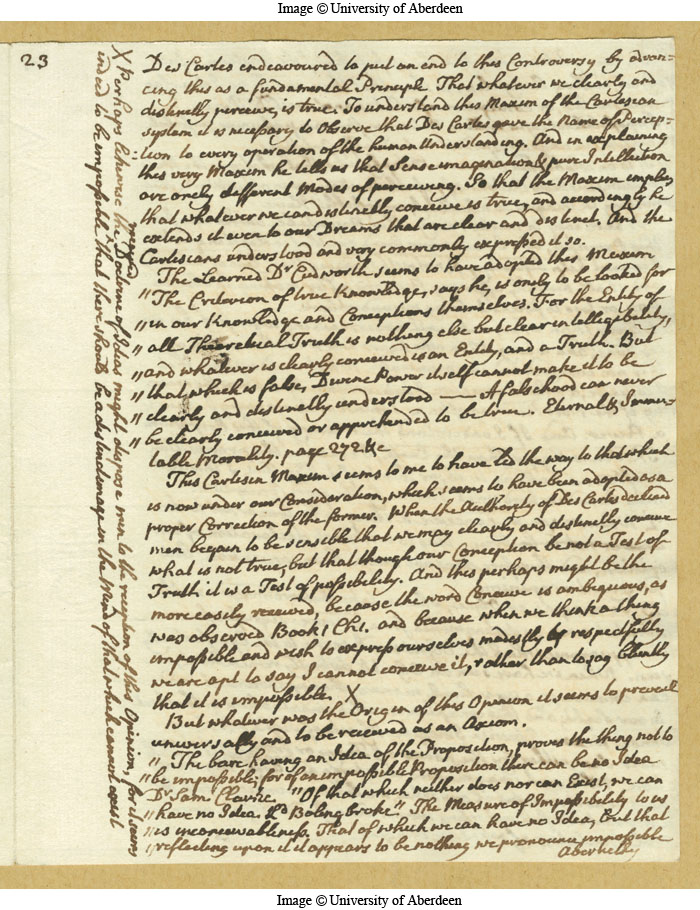 Image © University of Aberdeen
23
Des Cartes endeavoured to put an end to this Controversy by advan-
cing this as a fundamental Principle That whatever we clearly and
distinctly perceive, is true. To understand this Maxim of the Cartesean
system it is necessary to Observe that Des Cartes gave the Name of Percep-
tion to every operation of the human Understanding. And in explaining
this very Maxim he tells us that Sense imagination & pure Intellection
are onely different Modes of perceiving. So that the Maxim implies
that whatever we can distinctly conceive is true, and accordingly he
extends it even to our Dreams that are clear and distinct. And the
Cartesians understood and very commonly expressed it so.
The Learned Dr Cudworth seems to have adopted this Maxim
" The Criterion of true Knowledge, says he, is onely to be looked for
" in our Knowledge and Conceptions themselves. For the Entity of
" all Theoretical Truth is nothing else but clear intelligibility,
" and whatever is clearly conceived is an Entity, and a Truth. But
" that which is false, Divine Power itself cannot make it to be
" clearly and distinctly understood — A falshood can never
" be clearly conceived or apprehended to be true. Eternal & Immu-
table Morality. page 272 &c
This Cartesian Maxim seems to me to have led the way to that which
is now under our Consideration, which seems to have been adopted as a
proper Correction of the former. When the Authority of Des Cartes declined
men began to be sensible that we may clearly and distinctly conceive
what is not true, but that though our Conception be not a Test of
Truth it is a Test of possibility. And this perhaps might be the
more easily received, because the word Conceive is ambiguous, as
was observed Book 1 Ch 1. and because when we think a thing
impossible and wish to express ourselves modestly respectfully
we are apt to say I cannot conceive it, rather than to say bluntly
that it is impossible. X
But whatever was the Origin of this Opinion it seems to prevail
universally and to be received as an Axiom.
" The bare having an Idea of the Proposition, proves the thing not to
" be impossible; for of an impossible Proposition there can be no Idea
Dr Sam. Clarke. "Of that which neither does nor can Exist, we can
" have no Idea. Ld Bolingbroke" The Measure of Impossibility to us
" is inconceivableness. That of which we can have no Idea, but that
" reflecting upon it it appears to be nothing we pronounce impossible
Abernethy
X Perhaps likewise the Doctrine of Ideas might dispose men to the reception of this Opinion, for it seems
indeed to be impossible that there should be a distinct image in the Mind of that which cannot exist
Image © University of Aberdeen